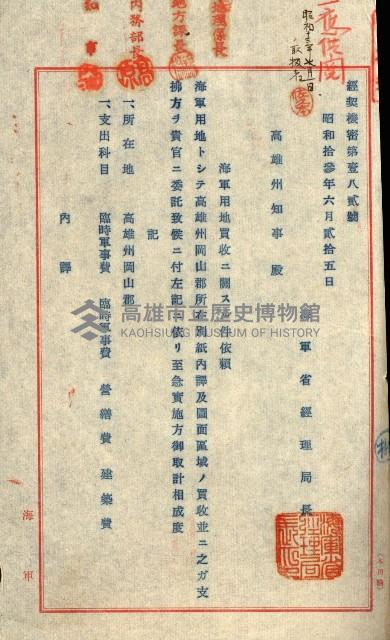 經契機密第壹八貳號
昭和拾參年六月貳拾五日
軍省經理局長
高雄州知事殿
海軍用地買收ニ關スル件依賴
海軍用地トシテ高雄州岡山郡所在別紙內譯及圖面區域ノ買收並ニ之ガ支
拂方ヲ貴官ニ委託致候ニ付左記ニ依リ至急實施方御取計相成度
記
一、所在地 高雄州岡山郡
一、支出科目 臨時軍事費 臨時軍事費 營繕費 建築費
內譯
海軍
內務部長
地方課長
地理係長
知事
高雄市立歷史博物館
KAOHSIUNG MUSEUM OF HISTORY